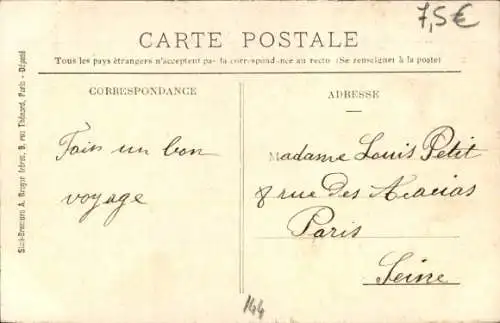 7,5€
CARTE POSTALE
Tous les pays étrangers n'acceptent pas la correspondance au recto (Se renseigner à la poste)
CORRESPONDANCE
ADRESSE
Fais un bon
voyage
Madame Louis Petit
8 rue des Acacias
Paris
Seine
144
A. Breger frères, 9, rue Thénard, Paris - Déposé